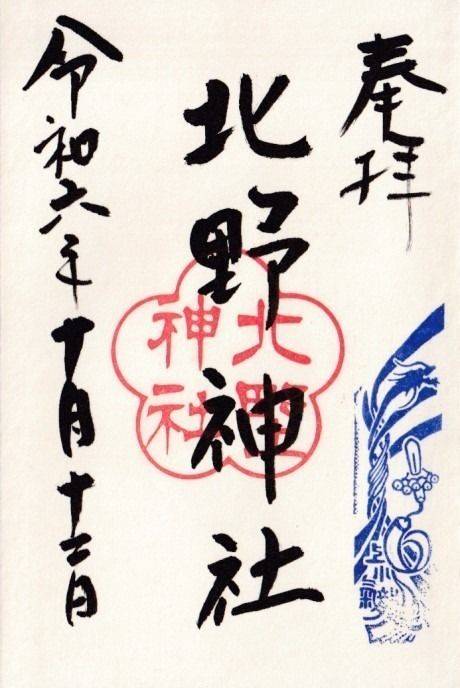 奉拝
北野神社
北野
神社
令和六年十月十二日